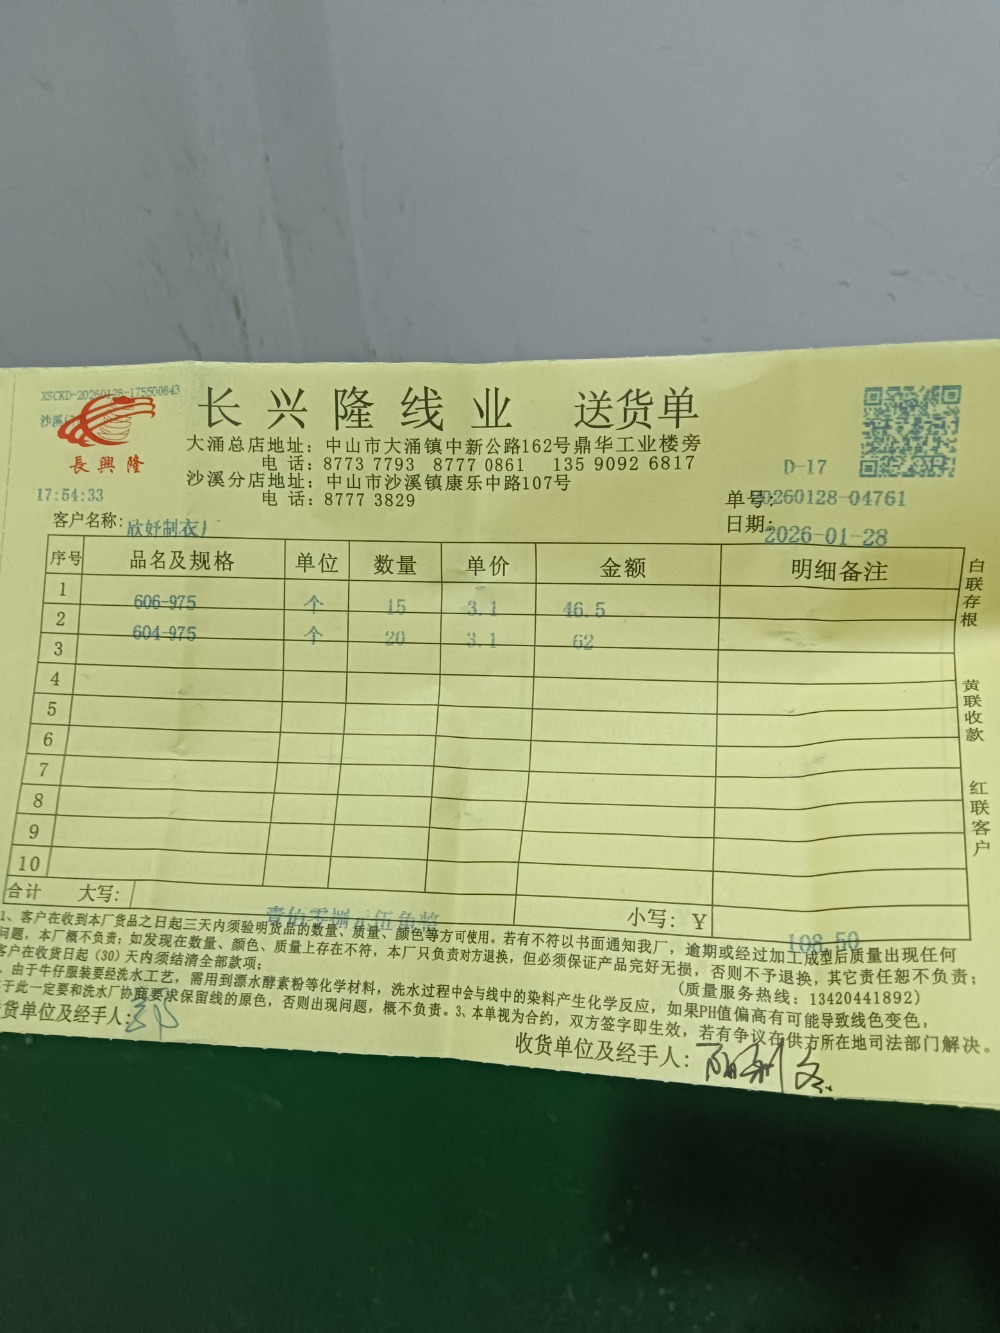 XSCKD-20260128-175500843
沙溪
長興隆
17:54:33
长兴隆线业 送货单
大涌总店地址：中山市大涌镇中新公路162号鼎华工业楼旁
电话：8773 7793 8777 0861 135 9092 6817
沙溪分店地址：中山市沙溪镇康乐中路107号
电话：8777 3829
D-17
单号：20260128-04761
日期：2026-01-28
客户名称：欣妤制衣厂
序号 品名及规格 单位 数量 单价 金额 明细备注
1 606-975 个 15 3.1 46.5
2 604-975 个 20 3.1 62
3
4
5
6
7
8
9
10
合计 大写：壹佰零捌元伍角整 小写：￥108.50
1、客户在收到本厂货品之日起三天内须验明货品的数量、质量、颜色等方可使用。若有不符以书面通知我厂，逾期或经过加工成型后质量出现任何
问题，本厂概不负责；如发现在数量、颜色、质量上存在不符，本厂只负责对方退换，但必须保证产品完好无损，否则不予退换，其它责任恕不负责；
客户在收货日起（30）天内须结清全部款项；
（质量服务热线：13420441892）
、由于牛仔服装要经洗水工艺，需用到漂水酵素粉等化学材料，洗水过程中会与线中的染料产生化学反应，如果PH值偏高有可能导致线色变色，
于此一定要和洗水厂协商要求保留线的原色，否则出现问题，概不负责。3、本单视为合约，双方签字即生效，若有争议在供方所在地司法部门解决。
货单位及经手人：
收货单位及经手人：
白联存根
黄联收款
红联客户